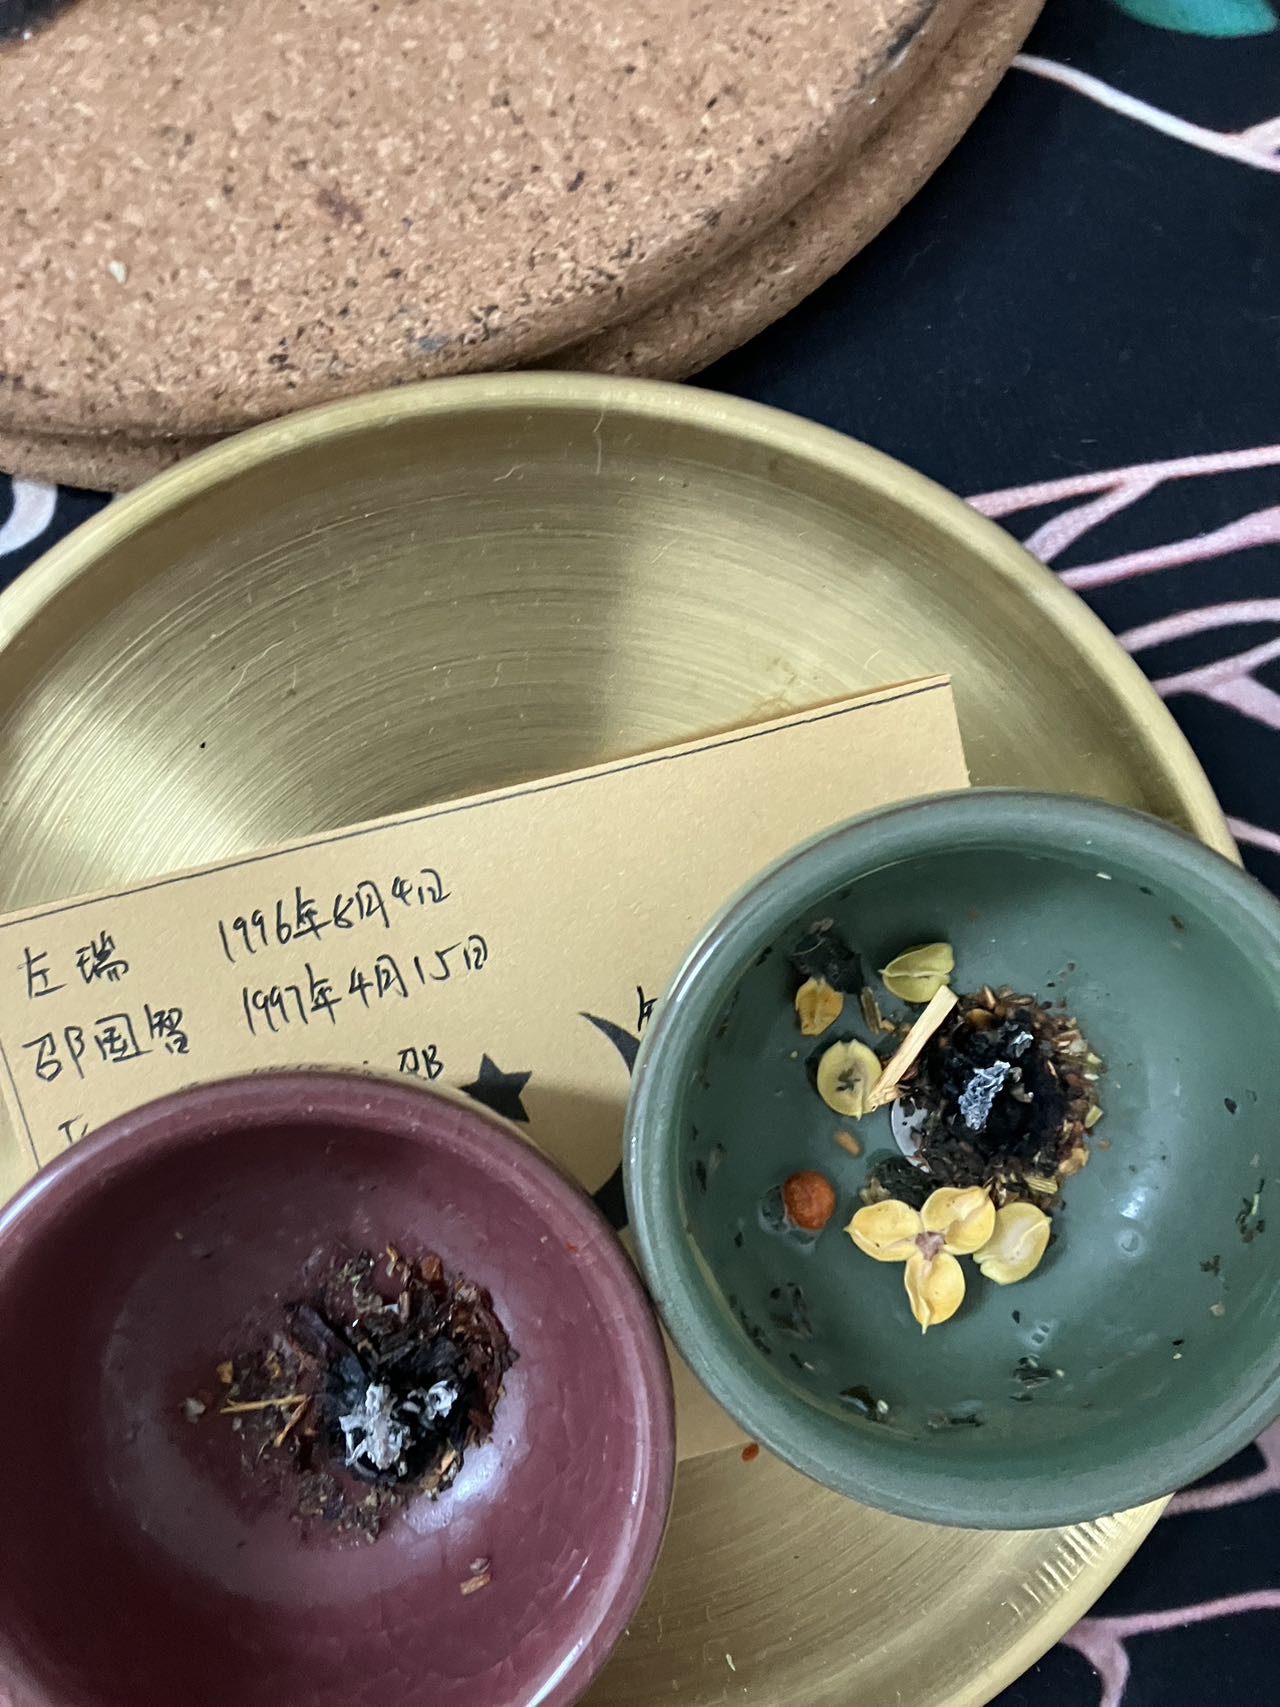 左瑞 1996年8月4日
邵国智 1997年4月15日
邵